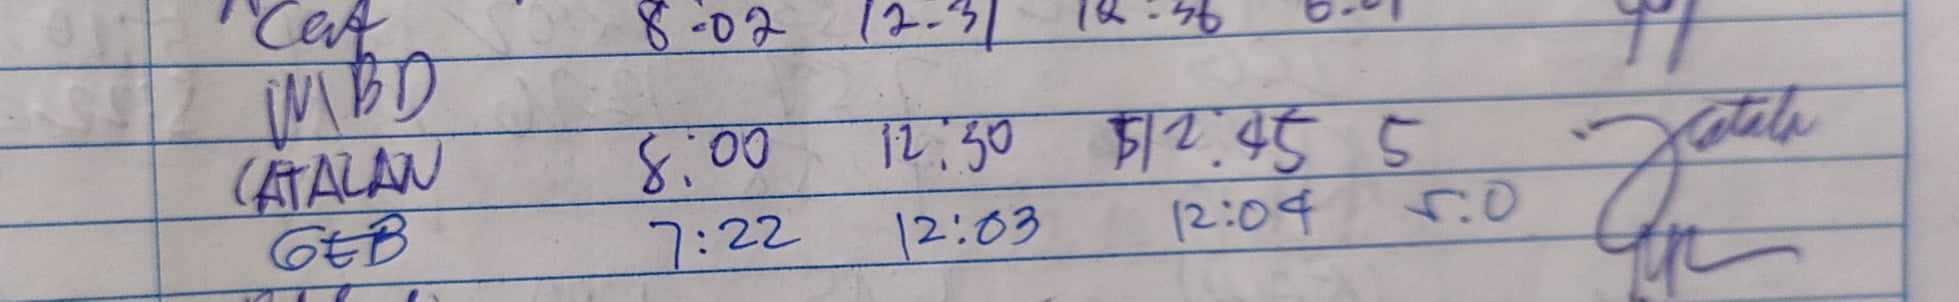 Cef 8:02 12:31 12:36
MBD
CATALAN 8:00 12:30 12:45 5 Catala
GEB 7:22 12:03 12:04 5:0